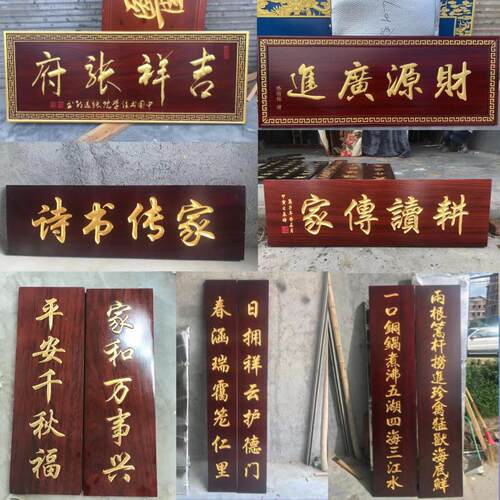 吉祥張府
財源廣進
诗书传家
耕讀傳家
家和万事兴
平安千秋福
日拥祥云护德门
春涵瑞霭笼仁里
兩根篙杆撈進珍禽猛獸海底鮮
一口銅鍋煮沸五湖四海三江水